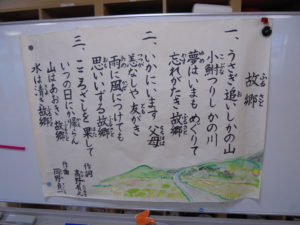 故郷
ふるさと
一、うさぎ追いしかの山
小鮒つりしかの川
夢はいまもめぐりて
忘れがたき故郷
二、いかにいます 父母
恙なしや友がき
雨に風につけても
思いいずる故郷
三、こころざしを果して
いつの日にか帰らん
山はあおき 故郷
水は清き 故郷
作詞 高野辰之
作曲 岡野貞一